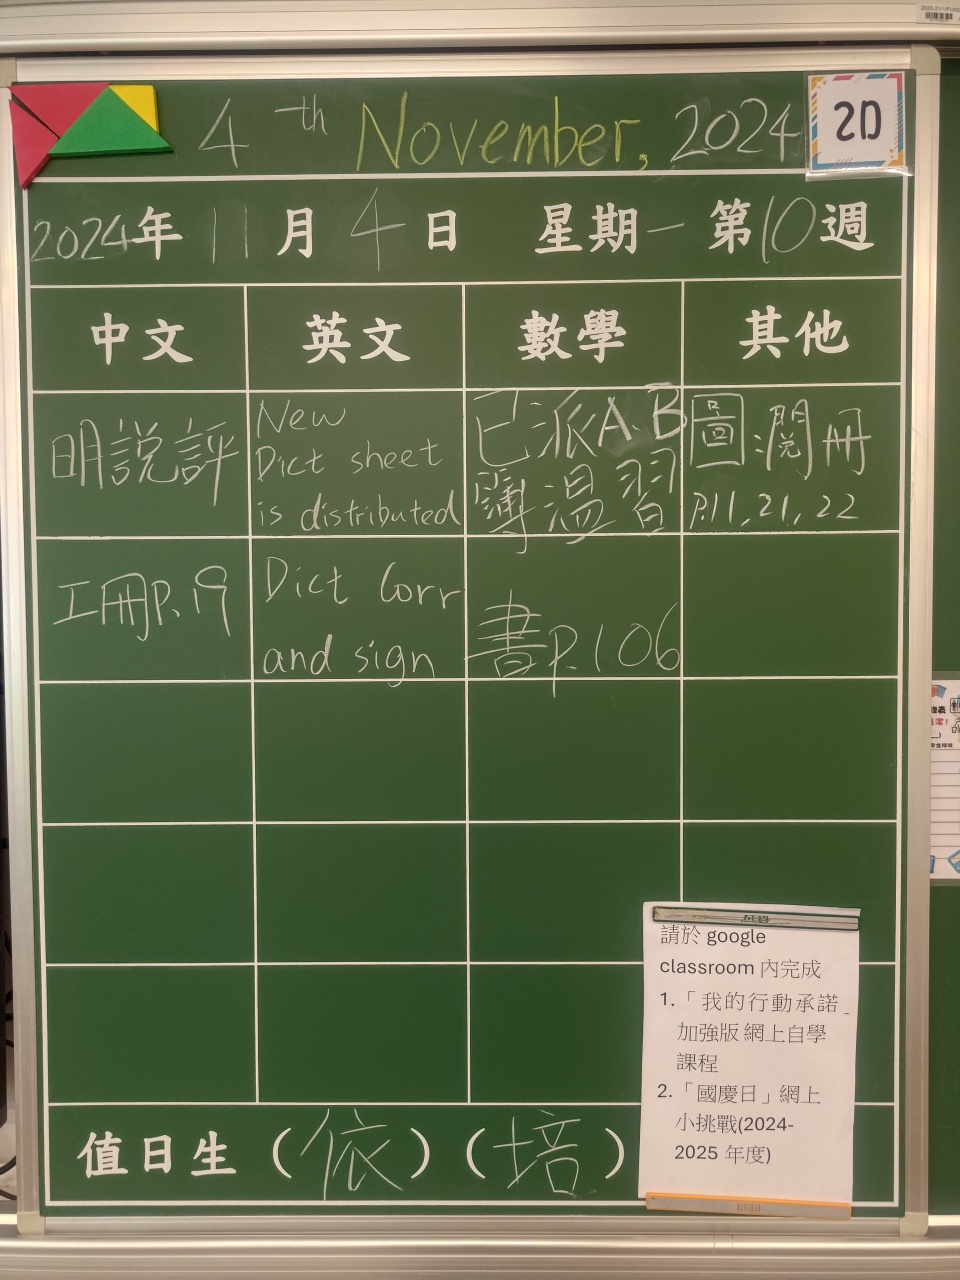 4th November, 2024
2D
2024年 11月 4日 星期一 第10週
中文 英文 數學 其他
明說評
New
Dict sheet
is distributed
已派A.B
簿溫習
圖閱冊
P.11, 21, 22
工冊P.19
Dict Corr
and sign
書P.106
請於 google
classroom 內完成
1.「我的行動承諾_
加強版 網上自學
課程
2.「國慶日」網上
小挑戰(2024-
2025 年度)
值日生 (依) (培)